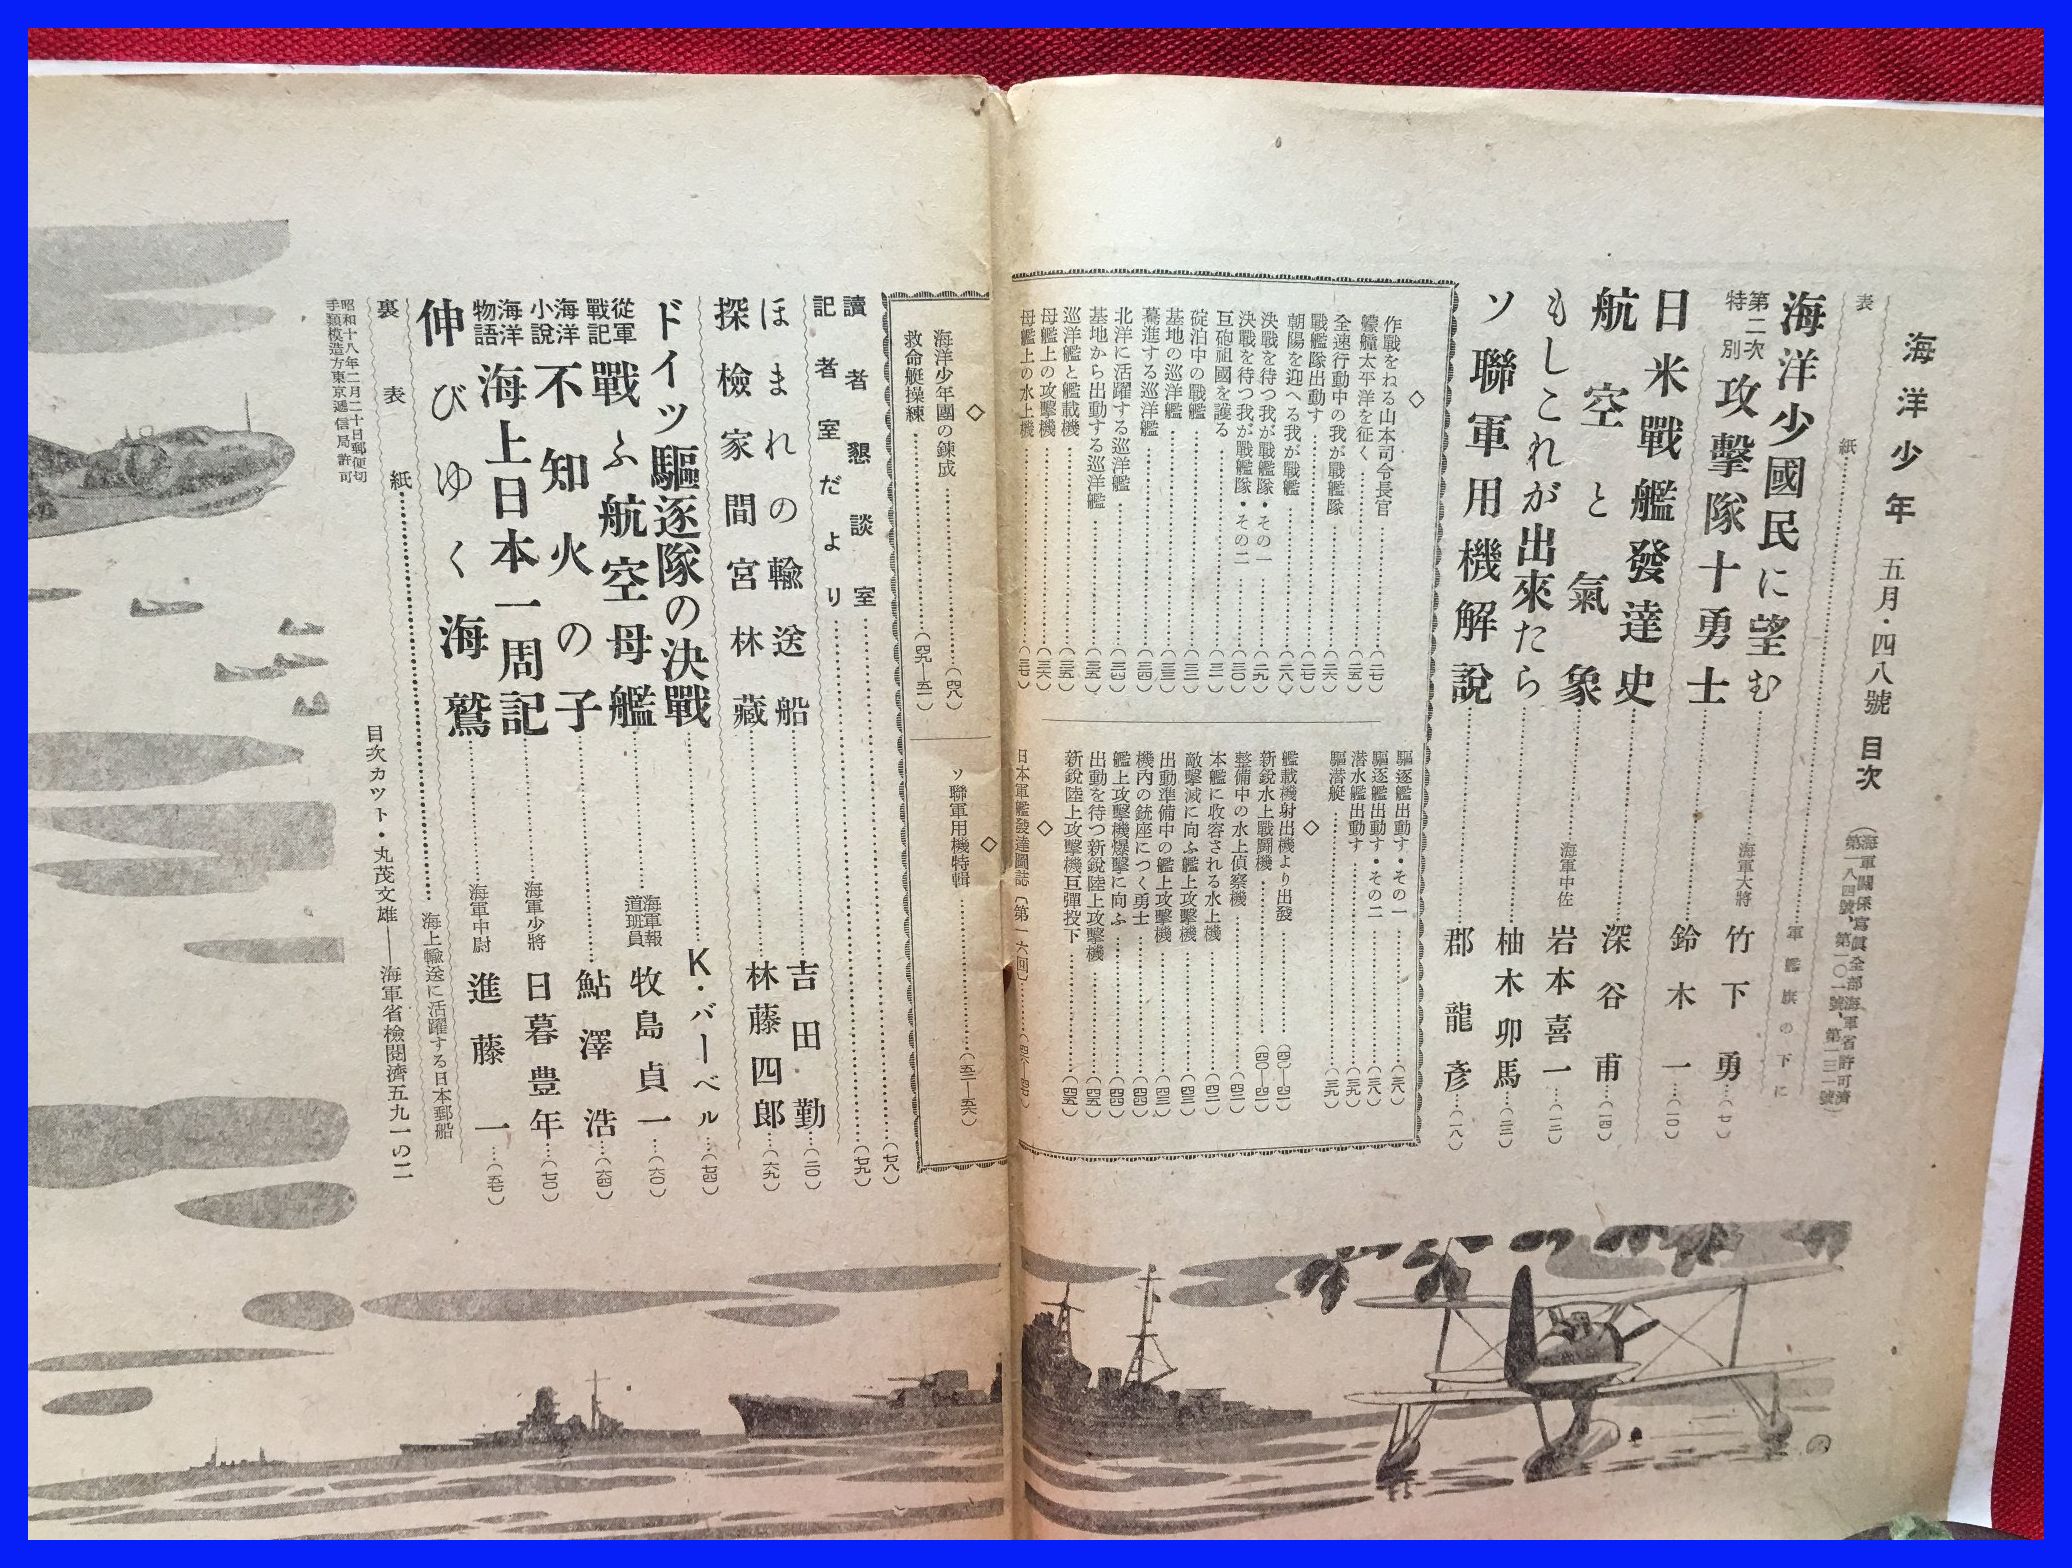 海洋少年 五月・四八號 目次
(海軍關係寫眞全部海軍省許可濟
第一八四號、第一〇一號、第一三一號)
表紙……軍艦旗の下に
海洋少國民に望む……海軍大將 竹下勇…(七)
第二次特別攻擊隊十勇士……鈴木一…(一〇)
日米戰艦發達史……深谷甫…(一四)
航空と氣象……海軍中佐 岩本喜一…(一二)
もしこれが出來たら……柚木卯馬…(三二)
ソ聯軍用機解説……郡龍彥…(一八)
◇
作戰をねる山本司令長官……(二七)
艨艟太平洋を征く……(二五)
全速行動中の我が戰艦隊……(二六)
戰艦隊出動す……(二七)
朝陽を迎へる我が戰艦……(二八)
決戰を待つ我が戰艦隊・その一……(二九)
決戰を待つ我が戰艦隊・その二……(三〇)
巨砲祖國を護る……(三一)
碇泊中の戰艦……(三二)
基地の巡洋艦……(三三)
驀進する巡洋艦……(三四)
北洋に活躍する巡洋艦……(三四)
基地から出動する巡洋艦……(三五)
巡洋艦と艦載機……(三五)
母艦上の攻擊機……(三六)
母艦上の水上機……(三七)
驅逐艦出動す・その一……(三八)
驅逐艦出動す・その二……(三八)
潜水艦出動す……(三九)
驅潜艇……(三九)
◇
艦載機射出機より出發……(四〇—四一)
新鋭水上戰鬪機……(四〇—四一)
整備中の水上偵察機……(四二)
本艦に收容される水上機……(四二)
敵擊滅に向ふ艦上攻擊機……(四三)
出動準備中の艦上攻擊機……(四三)
機内の銃座につく勇士……(四四)
艦上攻擊機爆擊に向ふ……(四四)
出動を待つ新鋭陸上攻擊機……(四五)
新鋭陸上攻擊機巨彈投下……(四五)
◇
日本軍艦發達圖誌〔第一六回〕……(四六—四七)
◇
海洋少年團の錬成……(四八)
救命艇操練……(四九—五一)
◇
ソ聯軍用機特輯……(五二—五六)
讀者懇談室……(七八)
記者室だより……(七九)
ほまれの輸送船……吉田勤…(二〇)
探檢家間宮林藏……林藤四郎…(六九)
ドイツ驅逐隊の決戰……K・バーベル…(七四)
從軍戰記 戰ふ航空母艦……海軍報道班員 牧島貞一…(六〇)
海洋小說 不知火の子……鮎澤浩…(六四)
海洋物語 海上日本一周記……海軍少將 日暮豊年…(七〇)
伸びゆく海鷲……海軍中尉 進藤一…(五七)
裏表紙……海上輸送に活躍する日本郵船
目次カット・丸茂文雄——海軍省檢閲濟五九一の二
昭和十八年二月二十日郵便切
手類模造方東京遞信局許可